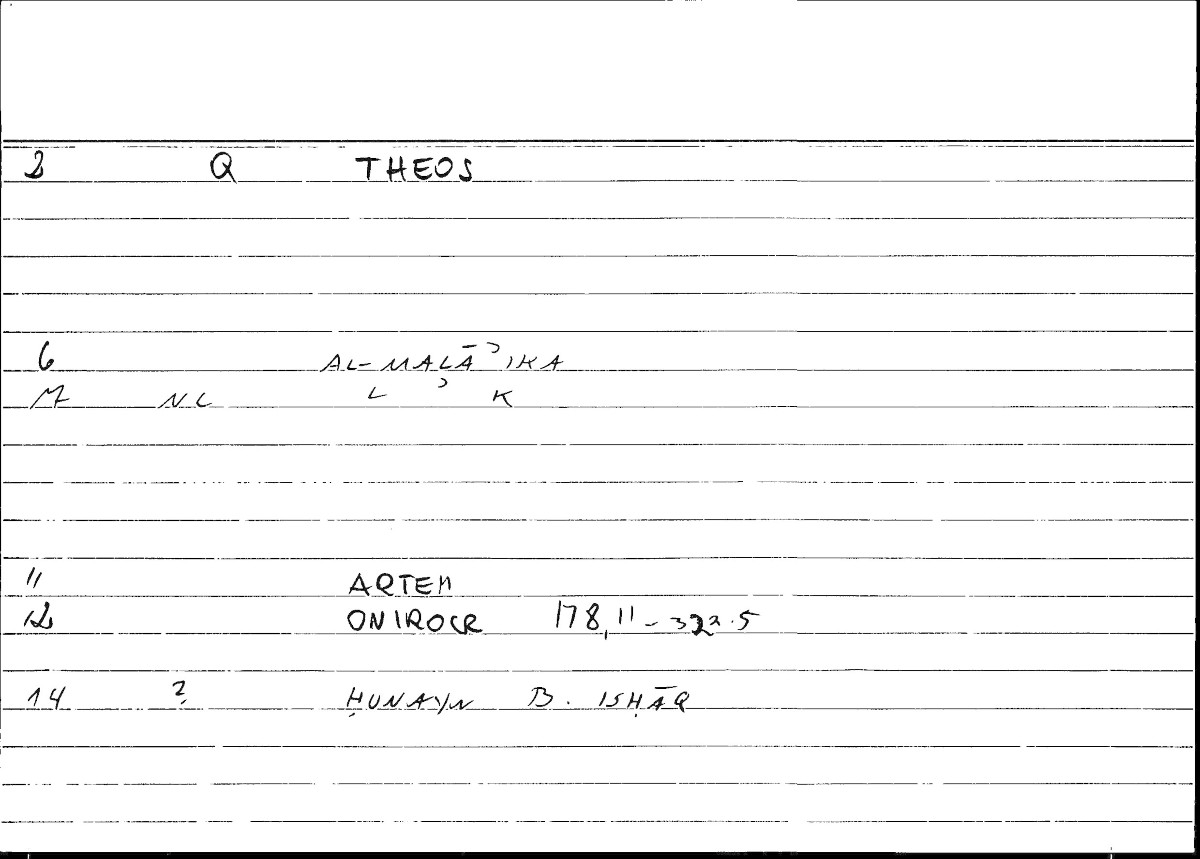 2 Q THEOS
6 AL-MALĀʾIKA
7 NL L ʾ K
11 ARTEM
12 ONIROCR 178,11 - 322.5
14 ? ḤUNAYN B. ISḤĀQ